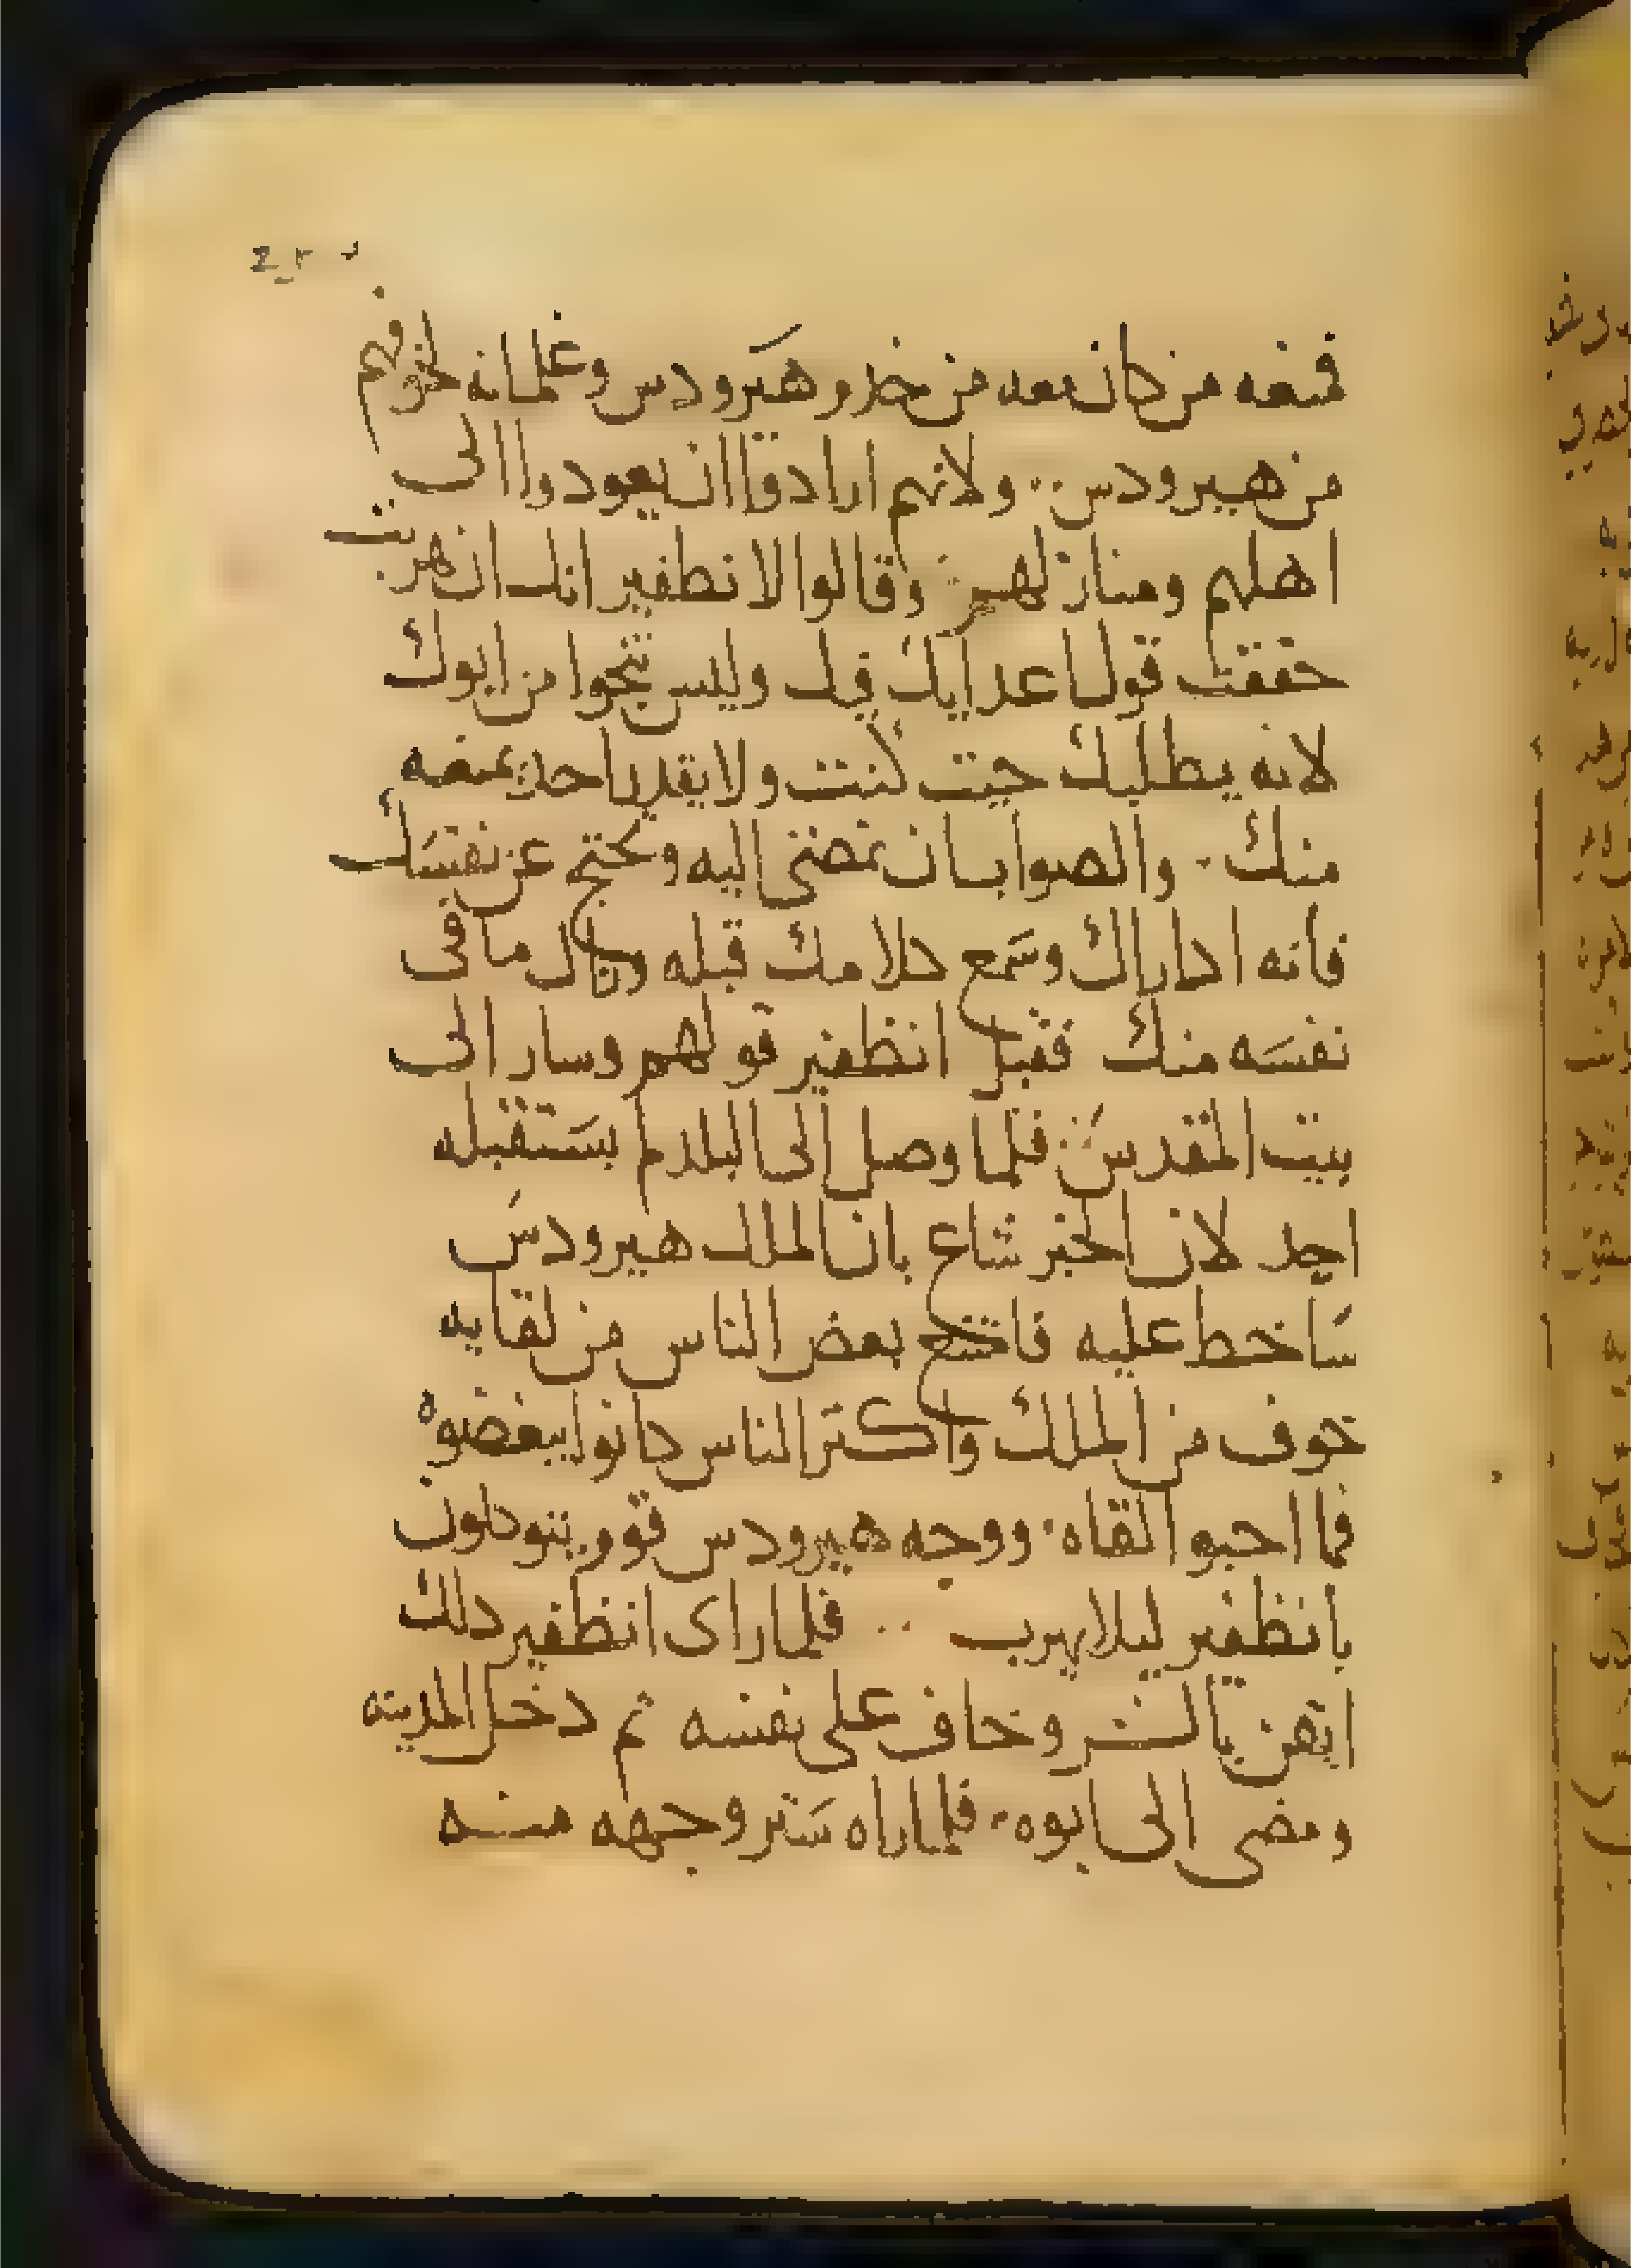 فمنعه من كان معه من خدام هيرودس وغلمانه لخوفهم
من هيرودس .. ولانهم ارادوا ان يعودوا الى
اهلهم ومنازلهم .. وقالوا لانطفير انك ان هربت
حققت قول اعدايك فيك وليس تنجوا من ابوك
لانه يطلبك حيت كنت ولا يقدر احد يمنعه
منك . والصواب ان تمضى اليه وتحتج عن نفسك
فانه ادا راك وسمع كلامك قبله وزال ما فى
نفسه منك فقبل انطفير قولهم وسار الى
بيت المقدس .. فلما وصل الى البلد لم يستقبله
احد لان الخبر شاع بان الملك هيرودس
ساخط عليه فامتنع بعض الناس من لقايه
خوف من الملك واكتر الناس كانوا يبغضوه
فما احبو القاه . ووجه هيرودس قوم يتوكلون
بانظفير ليلا يهرب .. فلما راى انظفير دلك
ايقن بالشر وخاف على نفسه تم دخل المدينه
ومضى الى ابوه . فلما راه ستر وجهه منه